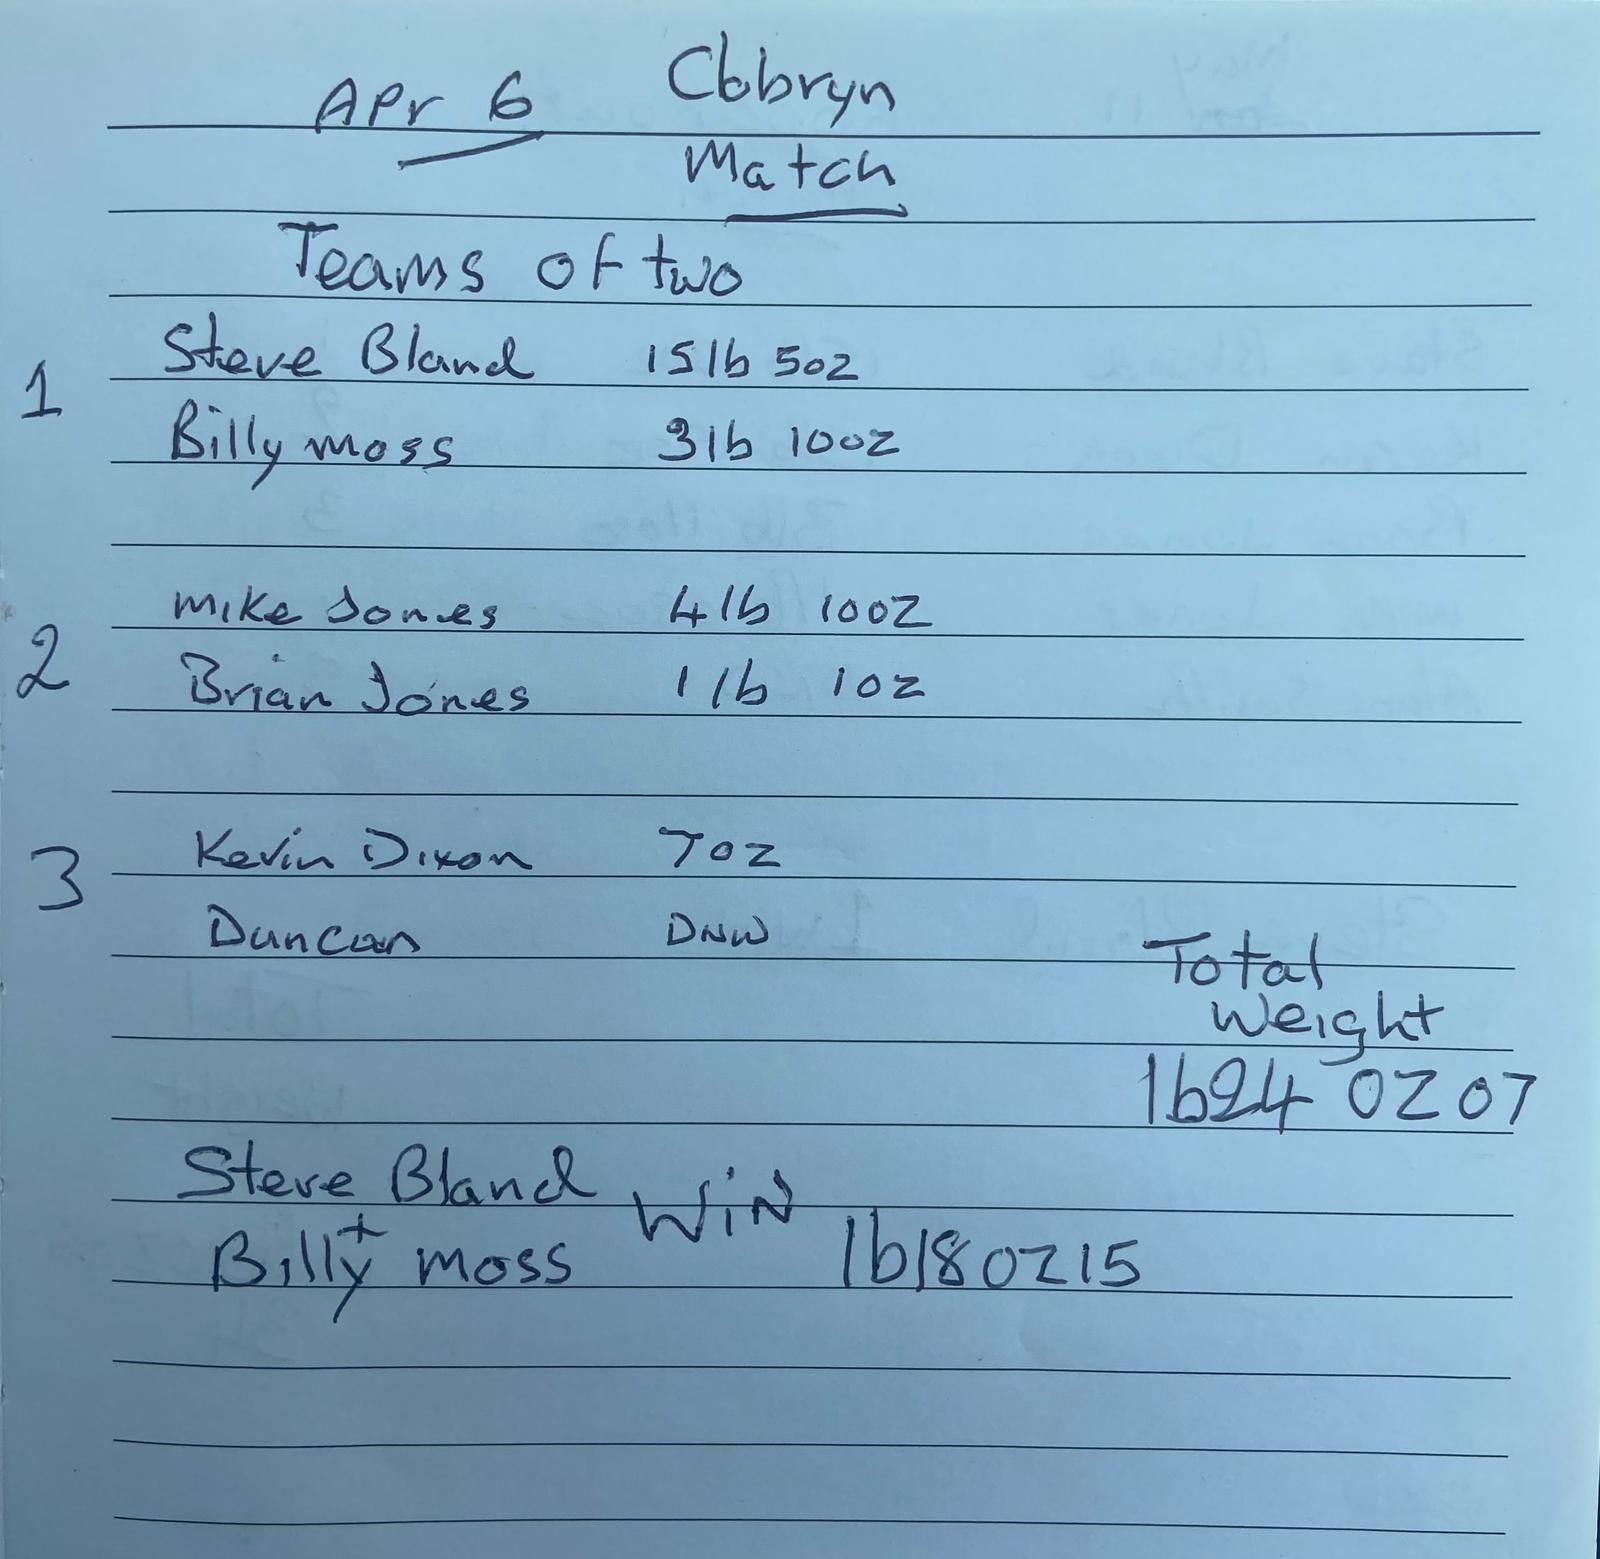 Apr 6 Cbbryn
Match
Teams of two
1 Steve Bland 15lb 5oz
Billy moss 3lb 10oz
2 Mike Jones 4lb 10oz
Brian Jones 1lb 1oz
3 Kevin Dixon 7oz
Duncan DNW
Total
Weight
lb24 oz 07
Steve Bland WiN
+
Billy moss lb18 oz15